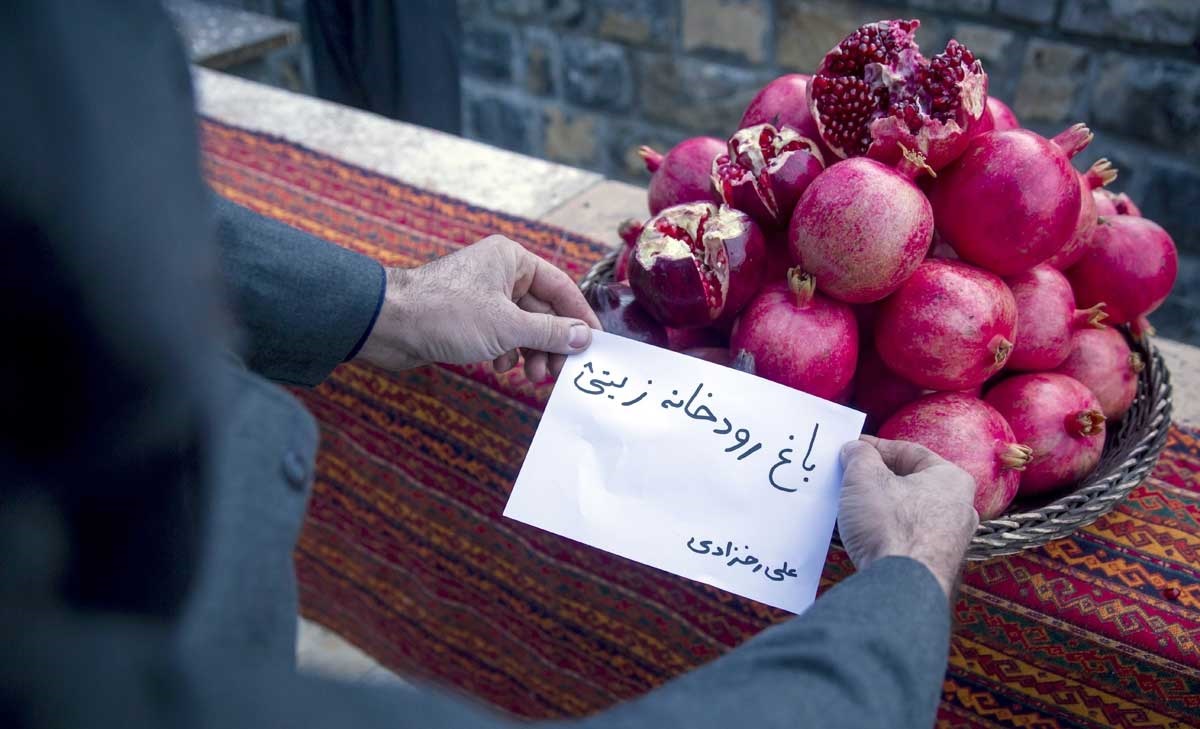 باغ رودخانه زیتی
علی رخزادی